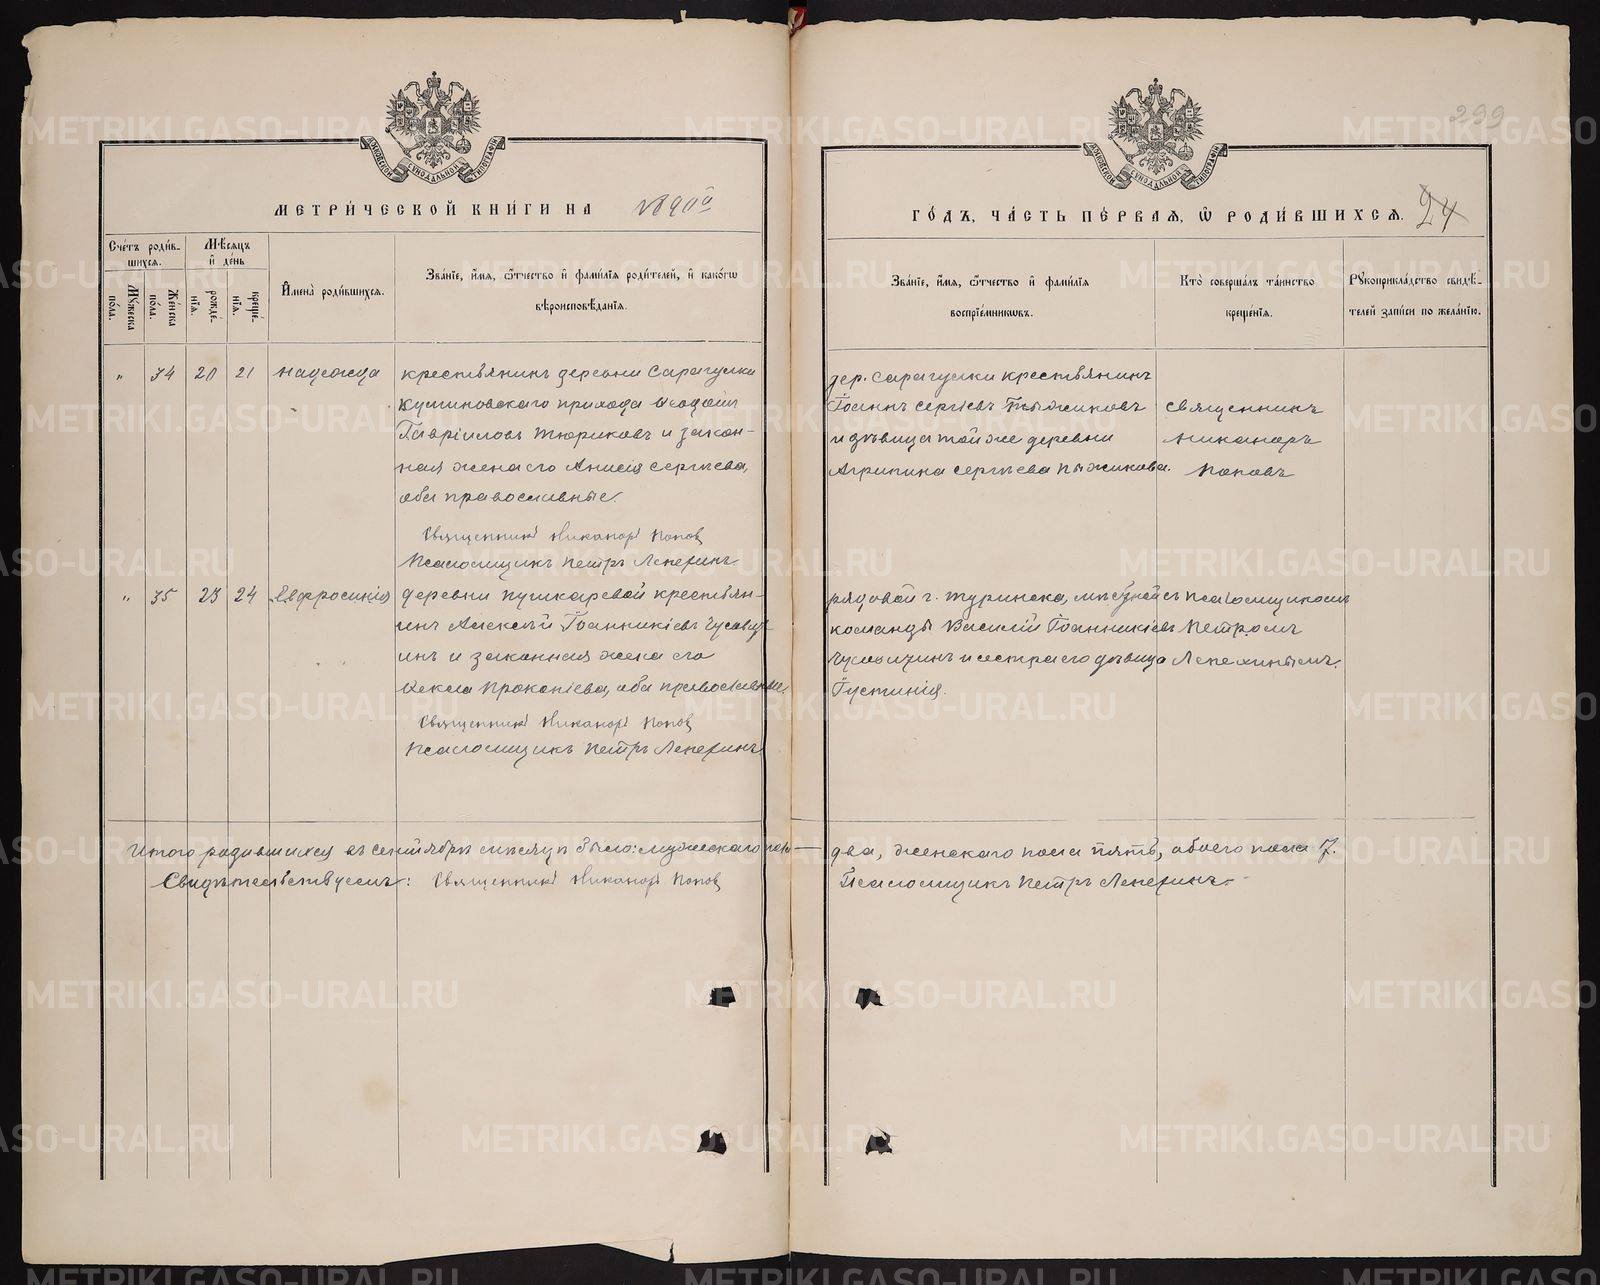 299
МОСКОВСКОЙ СѴНОДАЛЬНОЙ ТИПОГРАФІИ
МОСКОВСКОЙ СѴНОДАЛЬНОЙ ТИПОГРАФІИ
МЕТРИ́ЧЕСКОЙ КНИ́ГИ НА 1890й
ГО́ДЪ, ЧА́СТЬ ПЕ́РВАЯ, Ѡ РОДИ́ВШИХСЯ. 24
Сче́тъ роди́в-
шихся.
Мꙋ́жеска по́ла.
Же́нска по́ла.
Мѣ́сяцъ
и҆ де́нь
рожде́нїѧ.
креще́нїѧ.
И҆мена̀ роди́вшихсѧ.
Зва́нїе, и҆́мѧ, ѻ҆́тчество и҆ фами́лїѧ роди́телей, и҆ како́гѡ
вѣроисповѣ́данїѧ.
Зва́нїе, и҆́мѧ, ѻ҆́тчество и҆ фами́лїѧ
воспрїе́мникѡвъ.
Кто̀ соверша́лъ та́инство
креще́нїѧ.
Рꙋкоприкла́дство свидѣ́-
телей за́писи по жела́нїю.
" 34 20 21 Надежда
крестьянинъ деревни Сарагулки
Кутиновскаго прихода
Гавріиловъ Тюриковъ и закон-
ная жена его Анисія Сергѣева,
оба православные.
Священникъ Никаноръ Поповъ
Псаломщикъ Петръ Лепехинъ
дер. Сарагулки крестьянинъ
Іоаннъ Сергіевъ Пыжиковъ
и дѣвица той же деревни
Агрипина Сергѣева Пыжикова.
Священникъ
Никаноръ
Поповъ
" 35 23 24 Евфросинія
деревни Пушкаревой крестьян-
инъ Алексѣй Іоанникіевъ
инъ и законная жена его
Ѳекла Прокопіева, оба православные.
Священникъ Никаноръ Поповъ
Псаломщикъ Петръ Лепехинъ
рядовой г. Туринска, мѣстной
команды Василій Іоанникіевъ
и сестра его дѣвица
Іустинія.
съ псаломщикомъ
Петромъ
Лепехинымъ.
Итого родившихся въ сентябрѣ мѣсяцѣ было: мужескаго пола —
два, женскаго пола пять, обоего пола 7.
Свидѣтельствуемъ: Священникъ Никаноръ Поповъ
Псаломщикъ Петръ Лепехинъ
METRIKI.GASO-URAL.RU